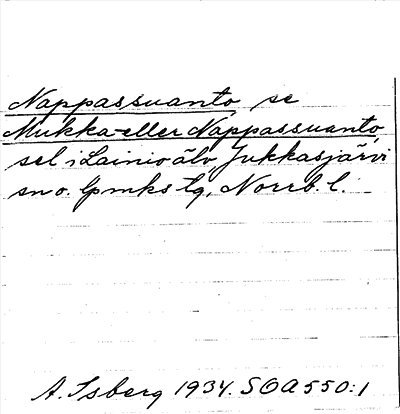 Nappassuanto se
Mukka- eller Nappassuanto,
sel i Lainio älv Jukkasjärvi
sn o. lpmks tg, Norrb. l.
A. Isberg 1934. SOA 550:1